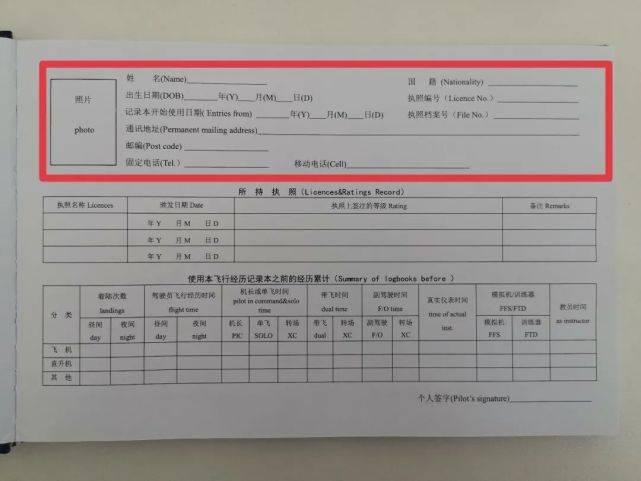 照片
photo
姓 名(Name)
国 籍 (Nationality)
出生日期(DOB) 年(Y) 月(M) 日(D)
执照编号(Licence No.)
记录本开始使用日期( Entries from) 年(Y) 月(M) 日(D)
执照档案号(File No.)
通讯地址(Permanent mailing address)
邮编(Post code)
固定电话(Tel.) 移动电话(Cell)
所 持 执 照 (Licences&Ratings Record)
执照名称 Licences 颁发日期 Date 执照上签注的等级 Rating 备注 Remarks
年 Y 月 M 日 D
年 Y 月 M 日 D
年 Y 月 M 日 D
使用本飞行经历记录本之前的经历累计 (Summary of logbooks before )
分 类
着陆次数
landings
驾驶员飞行经历时间
flight time
机长或单飞时间
pilot in command&solo
time
带飞时间
dual time
副驾驶时间
F/O time
真实仪表时间
time of actual
inst.
模拟机/训练器
FFS/FTD
教员时间
as instructor
昼间 夜间 昼间 夜间 机长 单飞 转场 带飞 转场 副驾驶 转场 模拟机 训练器
day night day night PIC SOLO XC dual XC F/O XC FFS FTD
飞 机
直升机
其 他
个人签字(Pilot's signature)